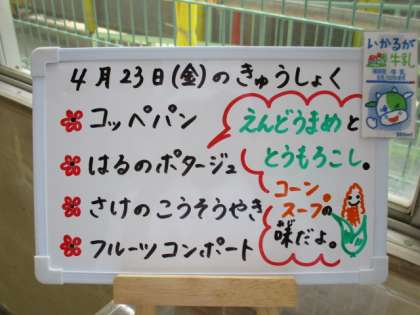 4月23日(金)のきゅうしょく
コッペパン
はるのポタージュ
さけのこうそうやき
フルーツコンポート
えんどうまめと
とうもろこし。
コーン
スープの
味だよ。
いかるが
牛乳